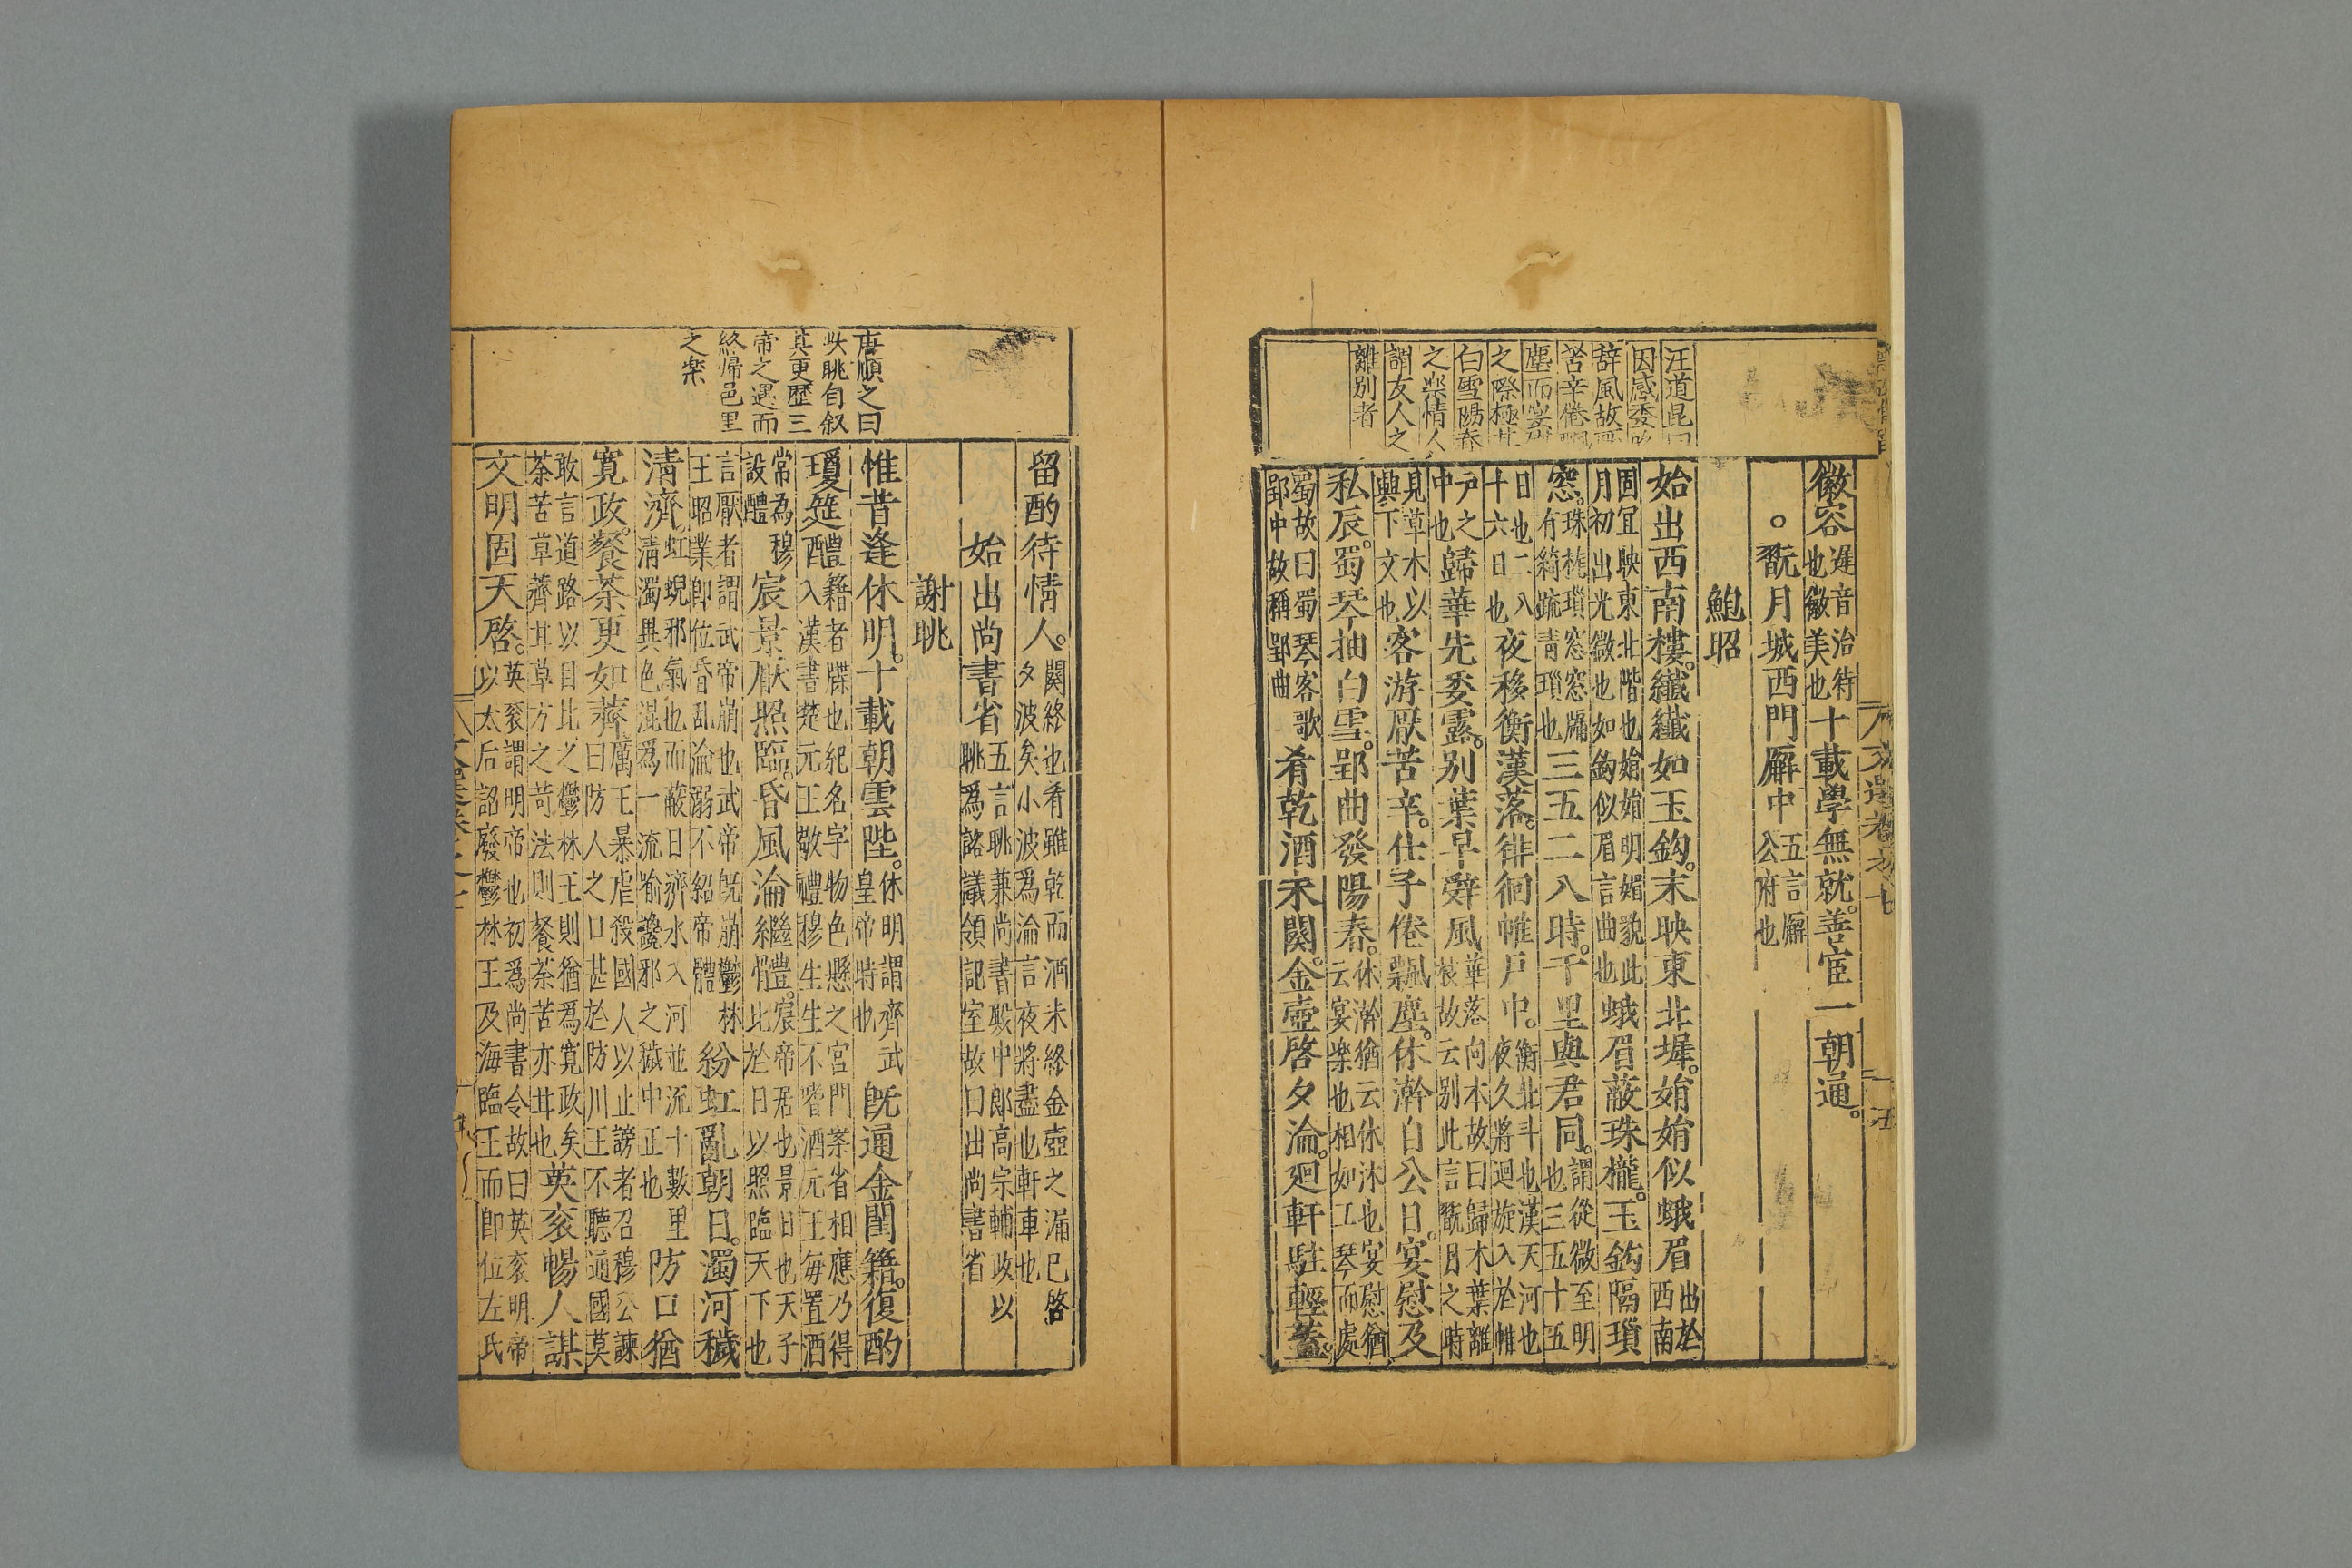 汪道昆曰
因感委
辞風故
苦辛倦飄
塵而宴慰
之際極其
白雪陽春
之樂情人
謂友人之
離别者
徽容遲音治待也徽美也十載學無就。善宦一朝通。
。翫月城西門廨中五言廨公府也
鮑昭
始出西南樓。纖纖如玉鈎。末映東北墀。娟娟似蛾眉出於西南
固冝映東北階也娟娟明媚貌此月初出光微也如鈎似眉言曲也蛾眉蔽珠櫳。玉鈎隔瑣
窓。珠櫳瑣窓窓牖有綺疏青瑣也三五二八時。千里與君同。謂從微至明也三五十五
日也二八十六日也夜移衡漢落。徘徊帷戶中。衡北斗也漢天河也夜久將迴旋入於帷
戶之中也歸華先委露。别葉早辭風華落向本故曰歸木葉離枝故云别此言翫月之時
見草木以興下文也客游厭苦辛。仕子倦飄塵。休澣自公日。宴慰及
私辰。蜀琴抽白雪。郢曲發陽春。休澣猶云休沐也宴慰猶云宴樂也相如工琴而處
蜀故曰蜀琴客歌郢中故稱郢曲肴乾酒未闋。金壺啓夕淪。迴軒駐輕蓋。
唐順之曰
此眺自叙
其更歷三
帝之遇而
終帰邑里
之樂
留酌待情人。闋終也肴雖乾而酒未終金壺之漏已啓夕波矣小波爲淪言夜將盡也軒車也
始出尚書省五言眺兼尚書殿中郎高宗輔政以眺爲諮議領記室故曰出尚書省
謝眺
惟昔逢休明。十載朝雲陛。休明謂齊武皇帝時也既通金閨籍。復酌
瓊筵醴籍者牒也紀名字物色懸之宮門案省相應乃得入漢書楚元王敬禮穆生生不嗜酒元王每置酒
常為穆設醴宸景厭照臨。昏風淪繼體。宸帝居也景日也天子比於日以照臨天下也
言厭者謂武帝崩也武帝旣崩鬱林王昭業即位昏乱淪溺不紹帝體紛虹亂朝日。濁河穢
清濟虹蜺邪氣也而蔽日濟水入河並流十數里清濁異色混爲一流喻讒邪之穢中正也防口猶
寬政。餐荼更如薺厲王暴虐殺國人以止謗者召穆公諫曰防人之口甚於防川王不聽通國莫
敢言道路以目比之鬱林王則猶爲寬政矣荼苦草薺甘草方之苛法則餐荼苦亦甘也英衮暢人謀
文明固天啓。英衮謂明帝也初爲尚書令故曰英衮明帝以太后詔廢鬱林王及海臨王而即位左氏